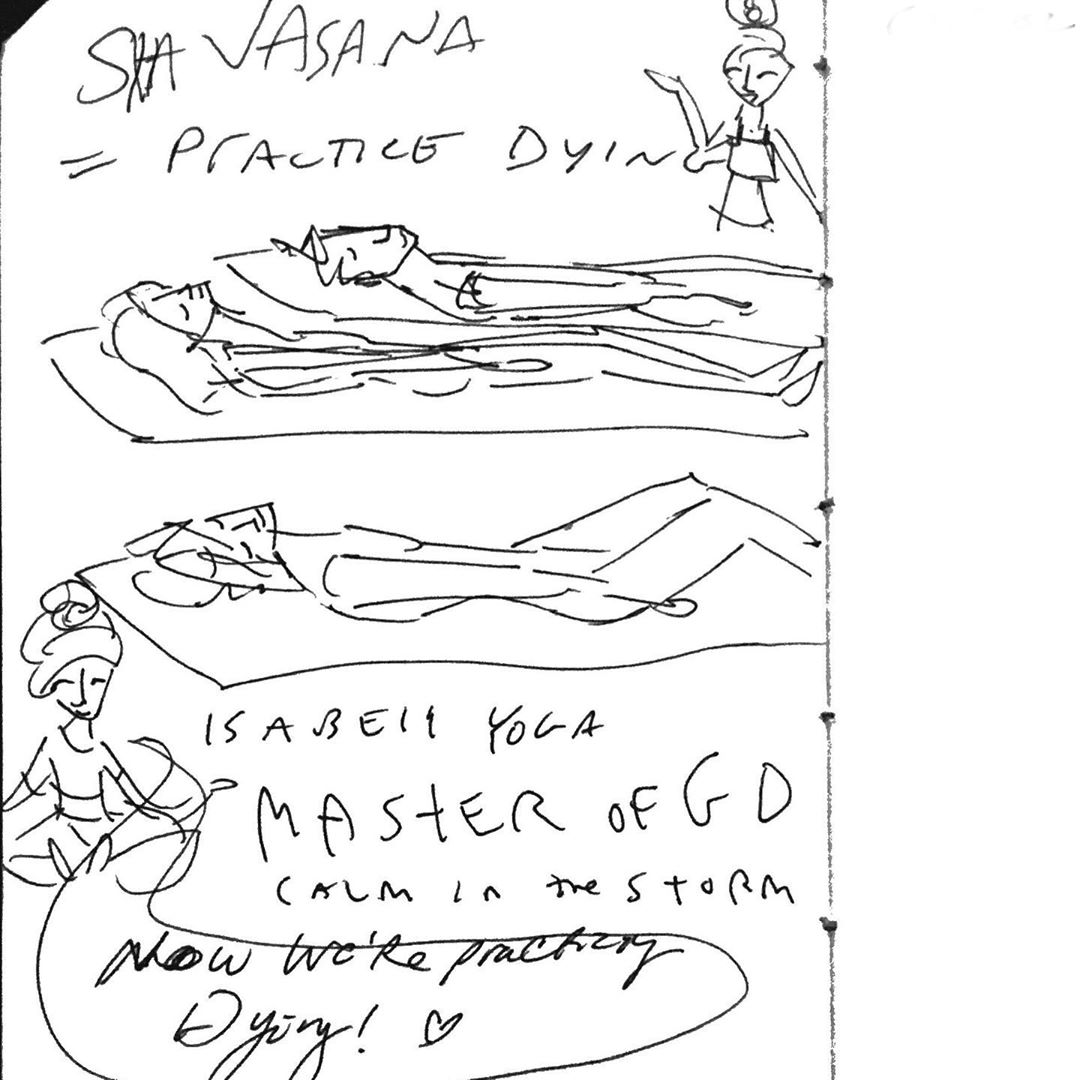 SHAVASANA
= PRACTICE DYING
ISABEll YOGA
MASTER OF G D
CALM in the STORM
Now We're practicing
Dying! ♡